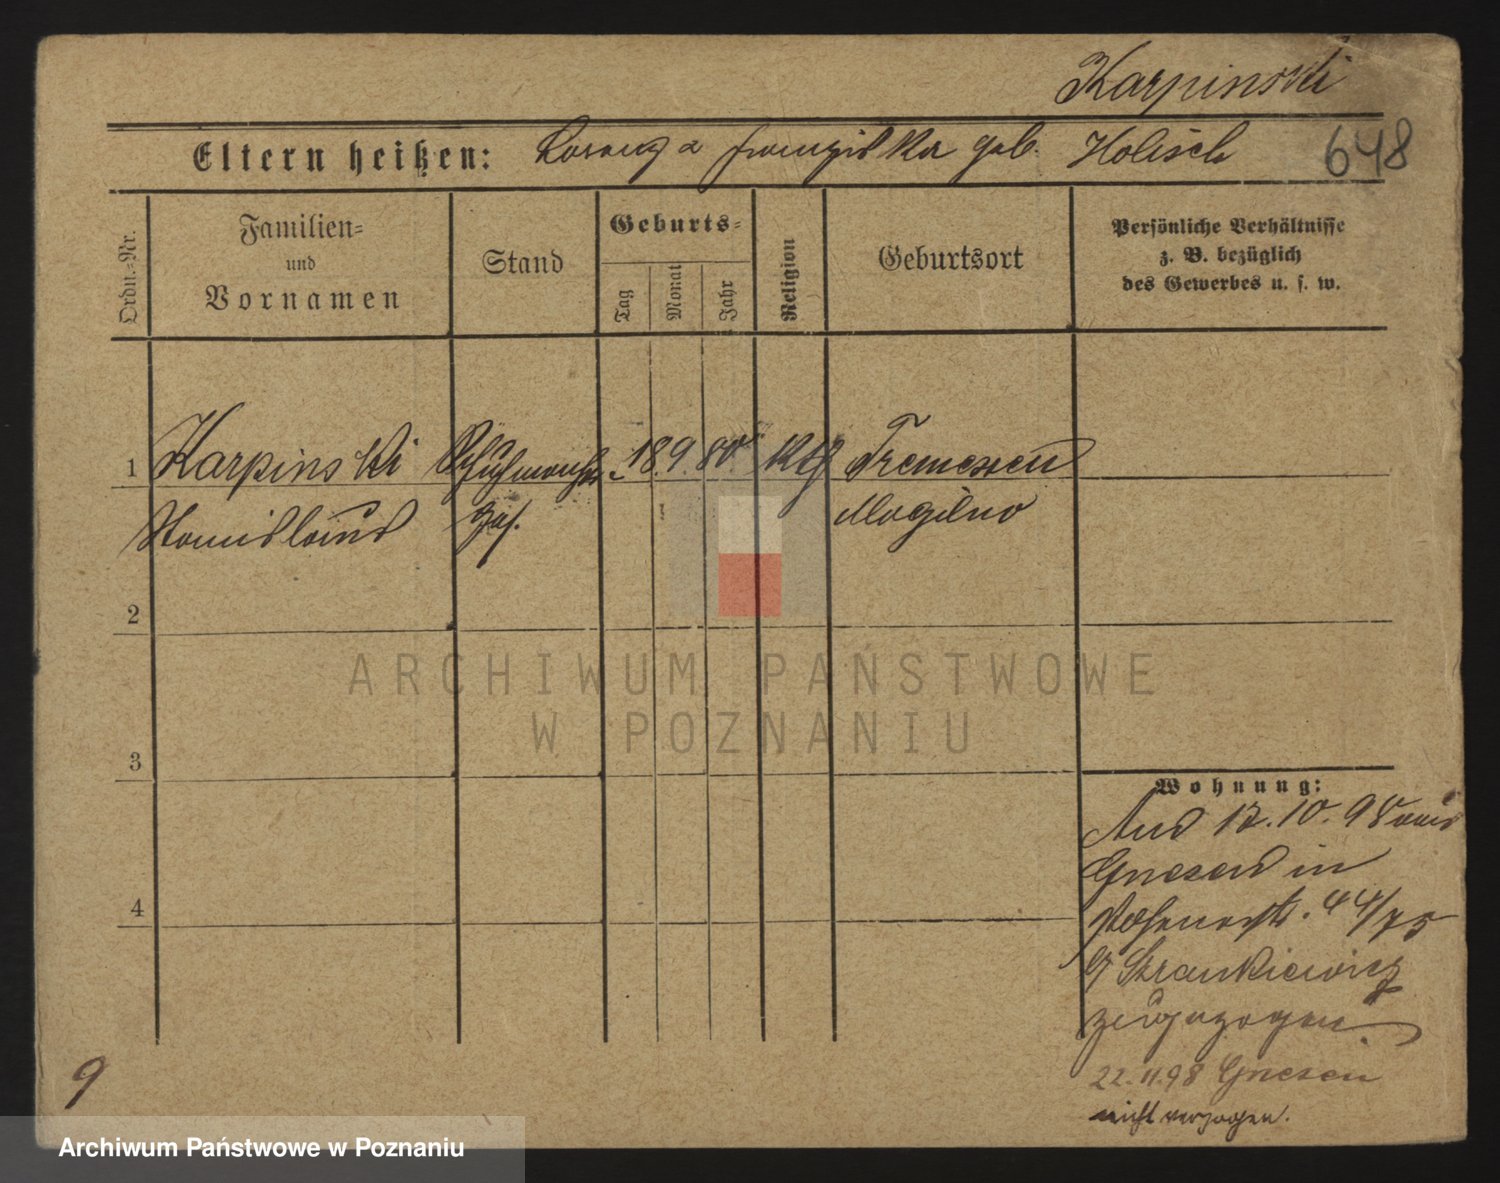 Karpinski
Eltern heißen: Lorenz & Franziska geb. Holisch
648
Ordn.-Nr.
Familien-
und
Vornamen
Stand
Geburts-
Tag
Monat
Jahr
Religion
Geburtsort
Persönliche Verhältnisse
z. B. bezüglich
des Gewerbes u. s. w.
1 Karpinski 18 9 80 kth Tremessen
Stanislaus Mogilno
2
3
4
Wohnung:
12.10.98 aus
Gnesen in
44/75
zugezogen
22.11.98 Gnesen
nicht verzogen.
9
ARCHIWUM PAŃSTWOWE
W POZNANIU
Archiwum Państwowe w Poznaniu